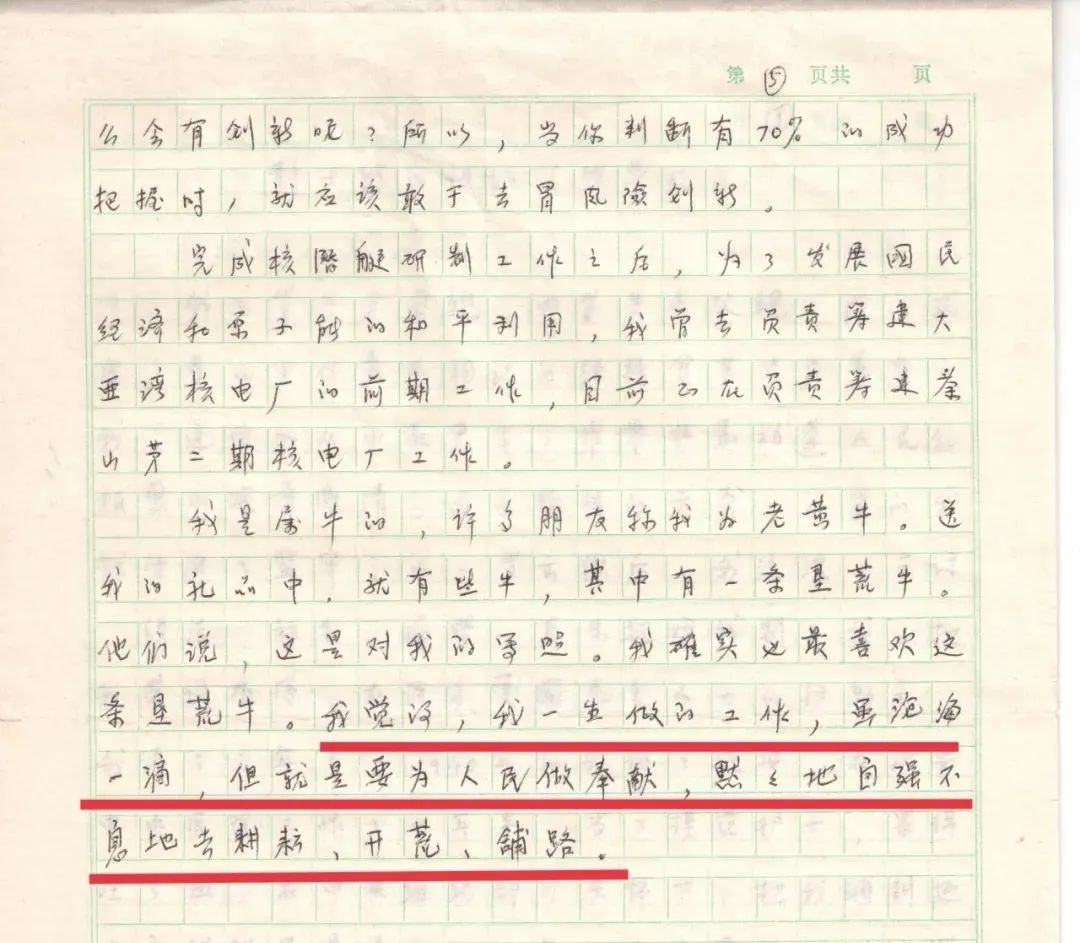 第 ⑮ 页共 页
么会有创新呢？所以，当你判断有70%的成功
把握时，就应该敢于去冒风险创新。
完成核潜艇研制工作之后，为了发展国民
经济和原子能的和平利用，我曾去负责筹建大
亚湾核电厂的前期工作，目前正在负责筹建秦
山第二期核电厂工作。
我是属牛的，许多朋友称我为老黄牛。送
我的礼品中，就有些牛，其中有一条垦荒牛。
他们说，这是对我的写照。我确实也最喜欢这
条垦荒牛。我觉得，我一生做的工作，虽沧海
一滴，但就是要为人民做奉献，默々地自强不
息地去耕耘、开荒、铺路。